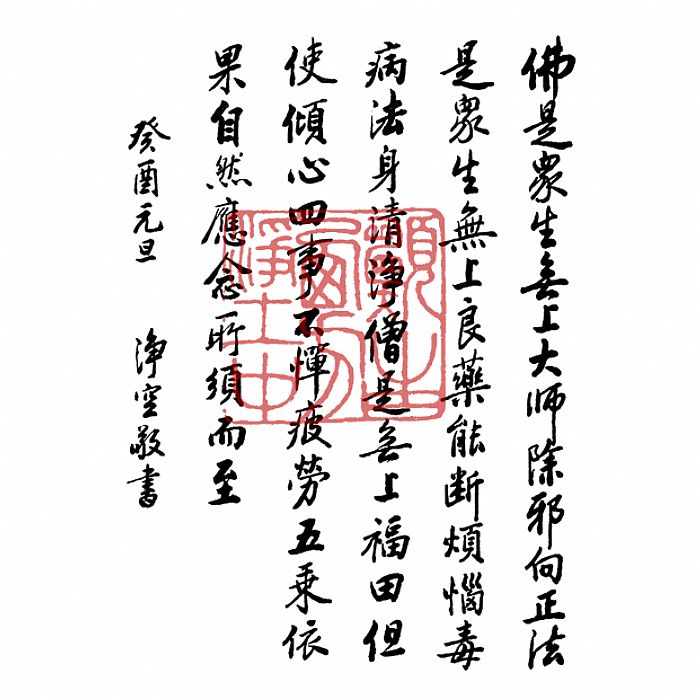 佛是眾生無上大師除邪向正法
是眾生無上良藥能斷煩惱毒
病法身清淨僧是無上福田但
使傾心四事不憚疲勞五乘依
果自然應念所須而至
癸酉元旦 淨空敬書
願生
西方
淨土中